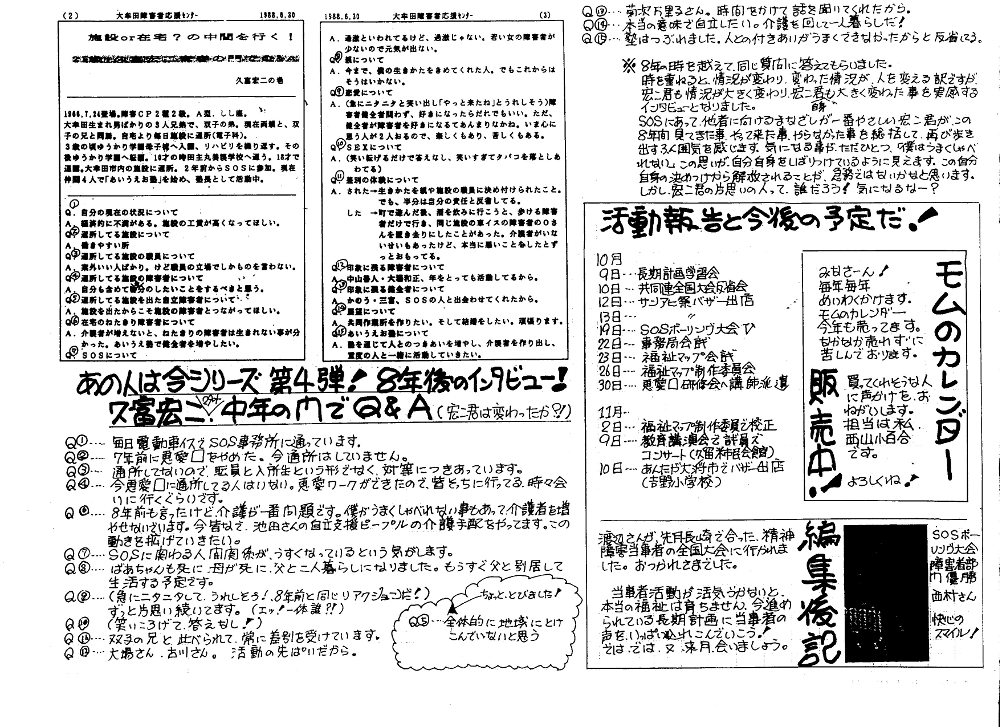 (2) 大牟田障害者応援センター 1988.6.30
施設or在宅？の中間を行く！
久富宏二の巻
大牟田生まれ男ばかりの3人兄弟で、双子の弟。現在両親と、双
子の兄と同居。自宅より毎日施設に通所(電子科)。
3歳の頃ゆうかり学園母子棟へ入園、リハビリを繰り返す。その
Q. 自分の現在の状況について
A. 経済的に不満がある。施設の工賃が高くなってほしい。
Q. 通所してる施設について
A. 働きやすい所
Q. 通所してる施設の職員について
A. 案外いい人ばかり。けど職員の立場でしかものを言わない。
Q. 通所してる施設の障害者について
A. 自分も含めて努力のしたいことをするべきと思う。
Q. 通所してる施設を出た自立障害者について
A. 施設を出たからこそ施設の障害者とつながってほしい。
Q. 在宅のねたきり障害者について
A. 介護者が増えないと、ねたきりの障害者は生きれない事が分
かった。あいうえお塾で健全者を増やしたい。
Q. SOSについて
1988.6.30 大牟田障害者応援センター (3)
A. 過激といわれてるけど、過激じゃない。若い女の障害者が
少ないので元気が出ない。
Q. 親について
A. 今まで、僕の生きかたをきめてくれた人。でもこれからは
そうはいかない。
Q. 恋愛について
A. (急にニタニタと笑い出し「やっと来たね」とうれしそう)障
害者健全者問わず、好きになったらだれでもいい。ただ、
健全者が障害者を好きになるてあんまりなかね。いま心に
思う人が1人おるので、楽しくもあり、苦しくもある。
Q. SEXについて
A. (笑い転げるだけで答えなし、笑いすぎてタバコを落としあ
わてる)
Q. 差別の体験について
A. された→生きかたを親や施設の職員に決め付けられたこと。
でも、半分は自分の責任と反省してる。
した→町で遊んだ後、酒を飲みに行こうと、歩ける障害
者だけで行き、同じ施設の車イスの障害者のOさ
んを置き去りにしたことがあった。介護者がいな
いせいもあったけど、本当に悪いことをしたとず
っとおもってる。
Q. 印象に残る障害者について
A. 中山善人・大場和正、年をとっても活動してるから。
Q. 印象に残る健全者について
A. かのう・三宮、SOSの人と出会わせてくれたから。
Q. 展望について
A. 共同作業所を作りたい。そして結婚をしたい。頑張ります。
Q. あいうえお塾について
A. 塾を通じて人とのつきあいを増やし、介護者を作り出し、
重度の人と一緒に活動していきたい。
あの人は今シリーズ 第4弾！8年後のインタビュー！
久富宏二 中年の門でQ&A (宏二君は変わったか？！)
Q①‥‥毎日電動車イスでSOS事務所に通っています。
Q②‥‥7年前に恩愛園をやめた。今通所はしていません。
Q③‥‥通所してないので、職員と入所生という形でなく、対等につきあっています。
Q④‥‥今恩愛園に通所してる人はいない。恩愛ワークができたので、皆そっちに行ってる、時々会
いに行くぐらいです。
Q⑥‥‥8年前も言ったけど介護が一番問題です。僕がうまくしゃべれない事もあって介護者を増
やせないでいます。今皆なで、池田さんの自立支援ピープルの介護手配をやってます。この
動きを拡げていきたい。
Q⑦‥‥SOSに関わる人間関係が、うすくなっているという気がします。
Q⑧‥‥ばあちゃんも死に、母が死に、父と二人暮らしになりました。もうすぐ父と別居して
生活する予定です。
Q⑨‥‥(急にニタニタして、うれしそう！8年前と同じリアクションだ！)
ずっと片思い続いてます。(エッ！一体誰？！)
Q⑩‥‥(笑いころげて、答えなし！)
Q⑪‥‥双子の兄と比べられて、常に差別を受けています。
Q⑫‥‥大場さん、古川さん。活動の先ぱいだから。
ちょっととびました！
Q⑤‥‥全体的に地域にとけ
こんでいないと思う
Q⑬‥‥菊次万里子さん。時間をかけて話を聞いてくれたから。
Q⑭‥‥本当の意味で自立したい。介護を回して一人暮らしだ！
Q⑮‥‥塾はつぶれました。人との付きあいがうまくできなかったからと反省してる。
※8年の時を越えて、同じ質問に答えてもらいました。
時を重ねると、情況が変わり、変わった情況が、人を変える訳ですが、
宏二君も情況が大きく変わり、宏二君も大きく変わった事を実感する
インタビューとなりました。
SOSにあって、他者に向けるまなざしが一番やさしい宏二君が、この
8年間見てきた事、やって来た事、やらなかった事を総括して、再び歩き
出すふん囲気を感じます。気になる事が、ただひとつ、「僕はうまくしゃべ
れない」。この思いが、自分自身をしばりつけているように見えます。この自分
自身の決めつけから解放されることが、必要ではないかなと思います。
しかし、宏二君の片思いの人って、誰だろう！気になるなー？
活動報告と今後の予定だ！
10月
9日‥‥長期計画学習会
10日‥‥共同連全国大会反省会
12日‥‥サンアビ祭バザー出店
13日‥‥ 〃
19日‥‥SOSボーリング大会
22日‥‥事務局会議
23日‥‥福祉マップ会議
26日‥‥福祉マップ制作委員会
30日‥‥恩愛園研修会へ講師派遣
11月‥‥
2日‥‥福祉マップ制作委員で校正
9日‥‥教育講演会で託児で
コンサート(久留米市民会館)
10日‥‥あんたが大将市でバザー出店
(吉野小学校)
モムのカレンダー
販売中！
みなさーん！
毎年毎年
めいわくかけます。
モムのカレンダー
今年も売ってきます。
なかなか売れずに
苦しんでおります。
買ってくれそうな人
に声かけを、お
ねがいします。
担当は私
西山小百合
です。
よろしくね！
編集後記
渡辺さんが、先月長崎であった、精神
障害当事者の全国大会に行かれま
した。おつかれさまでした。
当事者活動が活気づかないと、
本当の福祉は育ちません。今進め
られている長期計画に当事者の
声を、いっぱい込れこんでいこう！
では、では、又、来月、会いましょう。
SOSボー
リング大会
障害者部
門優勝
西村さん
快心の
スマイル！